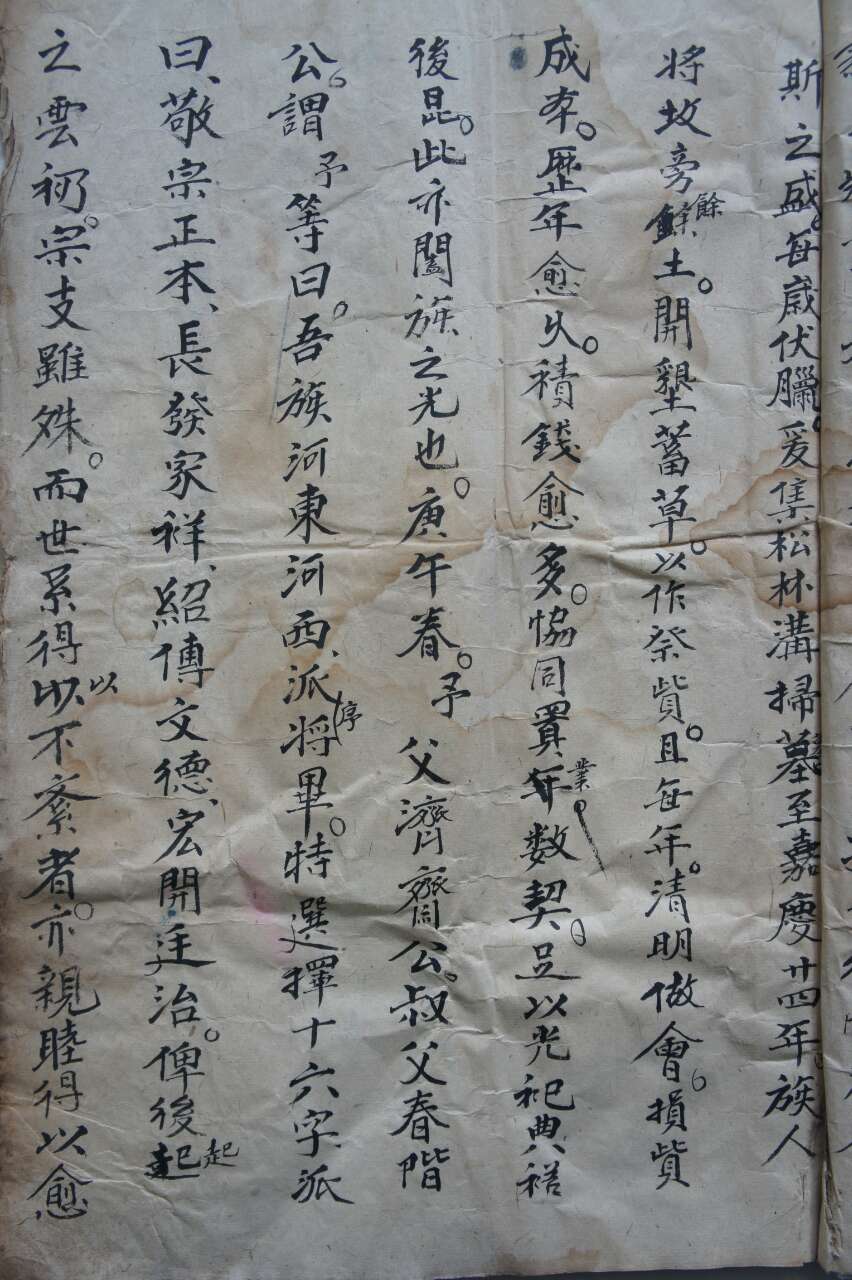 斯之盛。每歲伏臘。爰集松林溝掃墓。至嘉慶廿四年。族人
將坟旁餘土。開墾蓄草。以作祭貲。且每年。清明做會。損貲
成本。歷年愈久。積錢愈多。恊同買業。數契。足以光祀典裕
後昆。此亦闔族之光也。庚午春。予父濟齋公。叔父春階
公。謂予等曰。吾族河東河西、派將序畢。特選擇十六字、派
曰、敬宗正本、長發家祥、紹傳文德、宏開廷治。俾後起
之雲礽。宗支雖殊。而世系得以不紊者。亦親睦得以愈